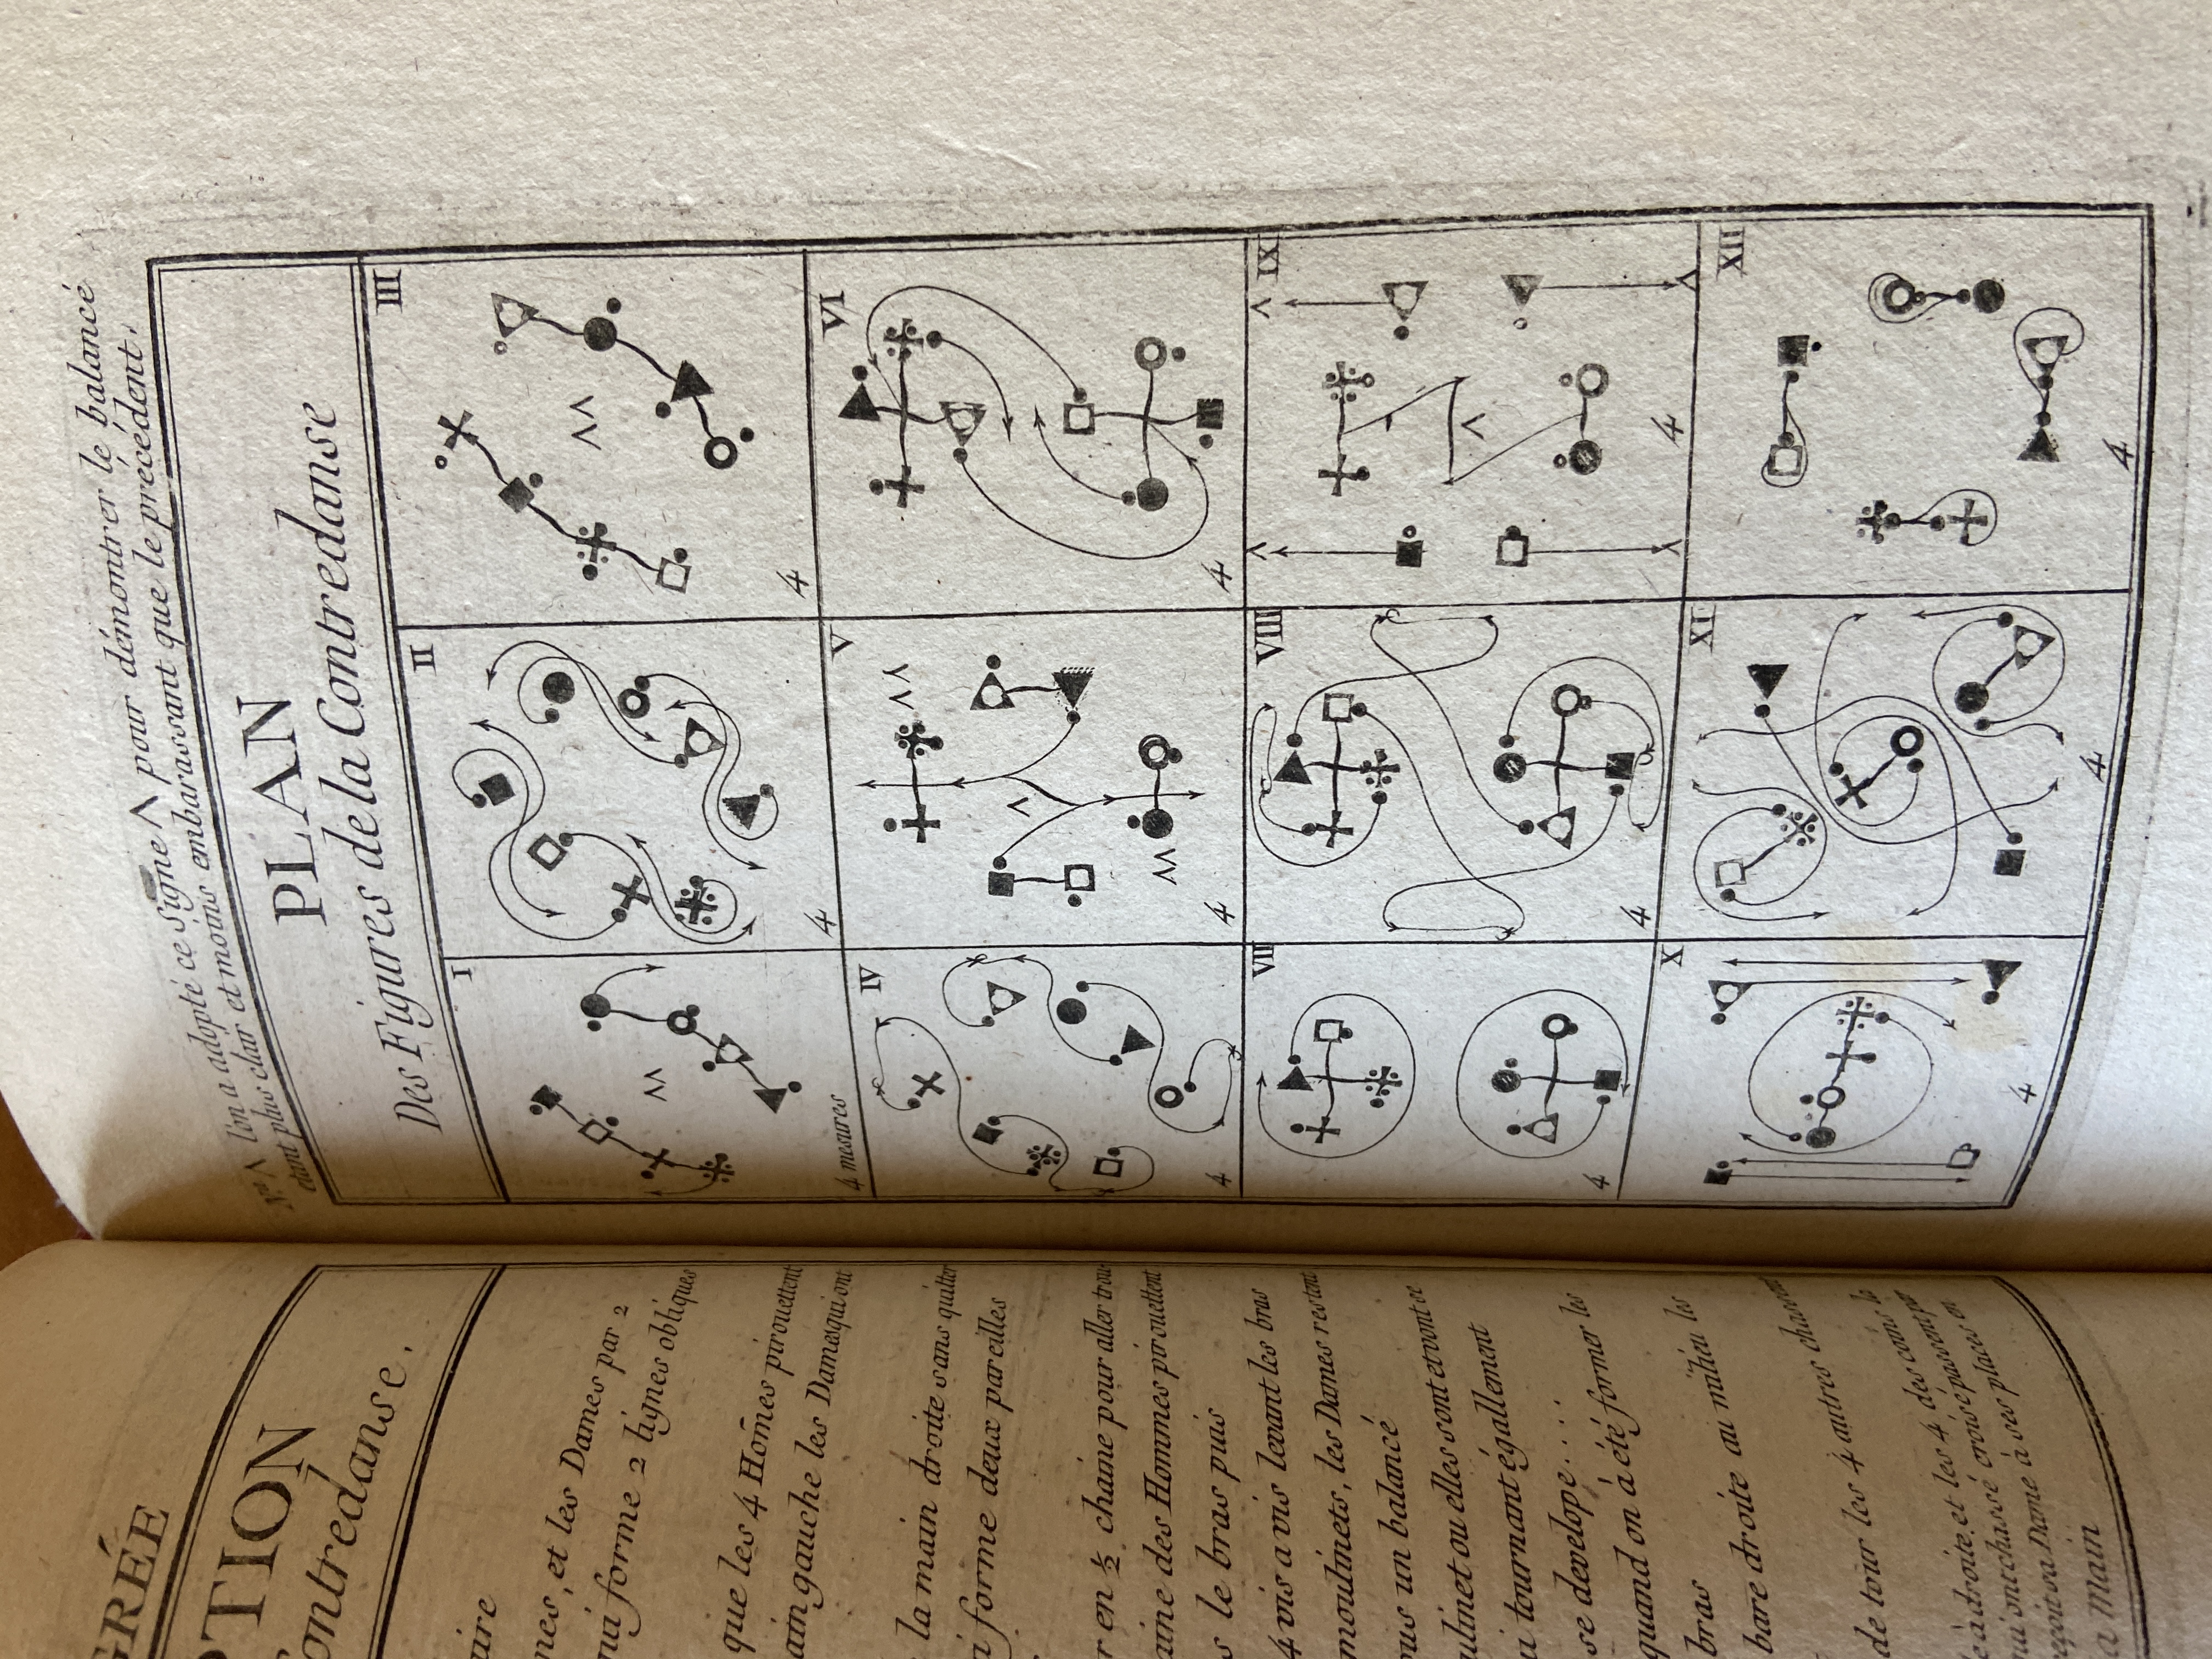 GRÉE
PTION
ontredanse.
aire
mes, et les Dames par 2
ui forme 2 lignes obliques
que les 4 Hom̃es pirouettent
ain gauche les Dames qui ont
la main droite sans quitter
i forme deux pareilles
r en ½ chaine pour aller trou-
aine des Hommes pirouettent
s le bras puis
4 vis a vis levant les bras
moulinets, les Dames restant
ous un balancé
ulinet ou elles sont et vont ce
ui tournant égallement
se developé....
quand on à été former les
bras
bare droite au milieu les
de tour les 4 autres chassent
e à droite, et les 4 des coins le
nui on rechassé croisé passent par
reçoit sa Dame à ses places en
a Main
N.ta Λ l'on a adopté ce Signe Λ pour démontrer le balancé
etant plus clair et moins embarassant que le précédent,
PLAN
Des Figures de la Contredanse
I
II
III
4 mesures
4
4
IV
V
VI
4
4
4
VII
VIII
IX
4
4
4
X
XI
XII
4
4
4